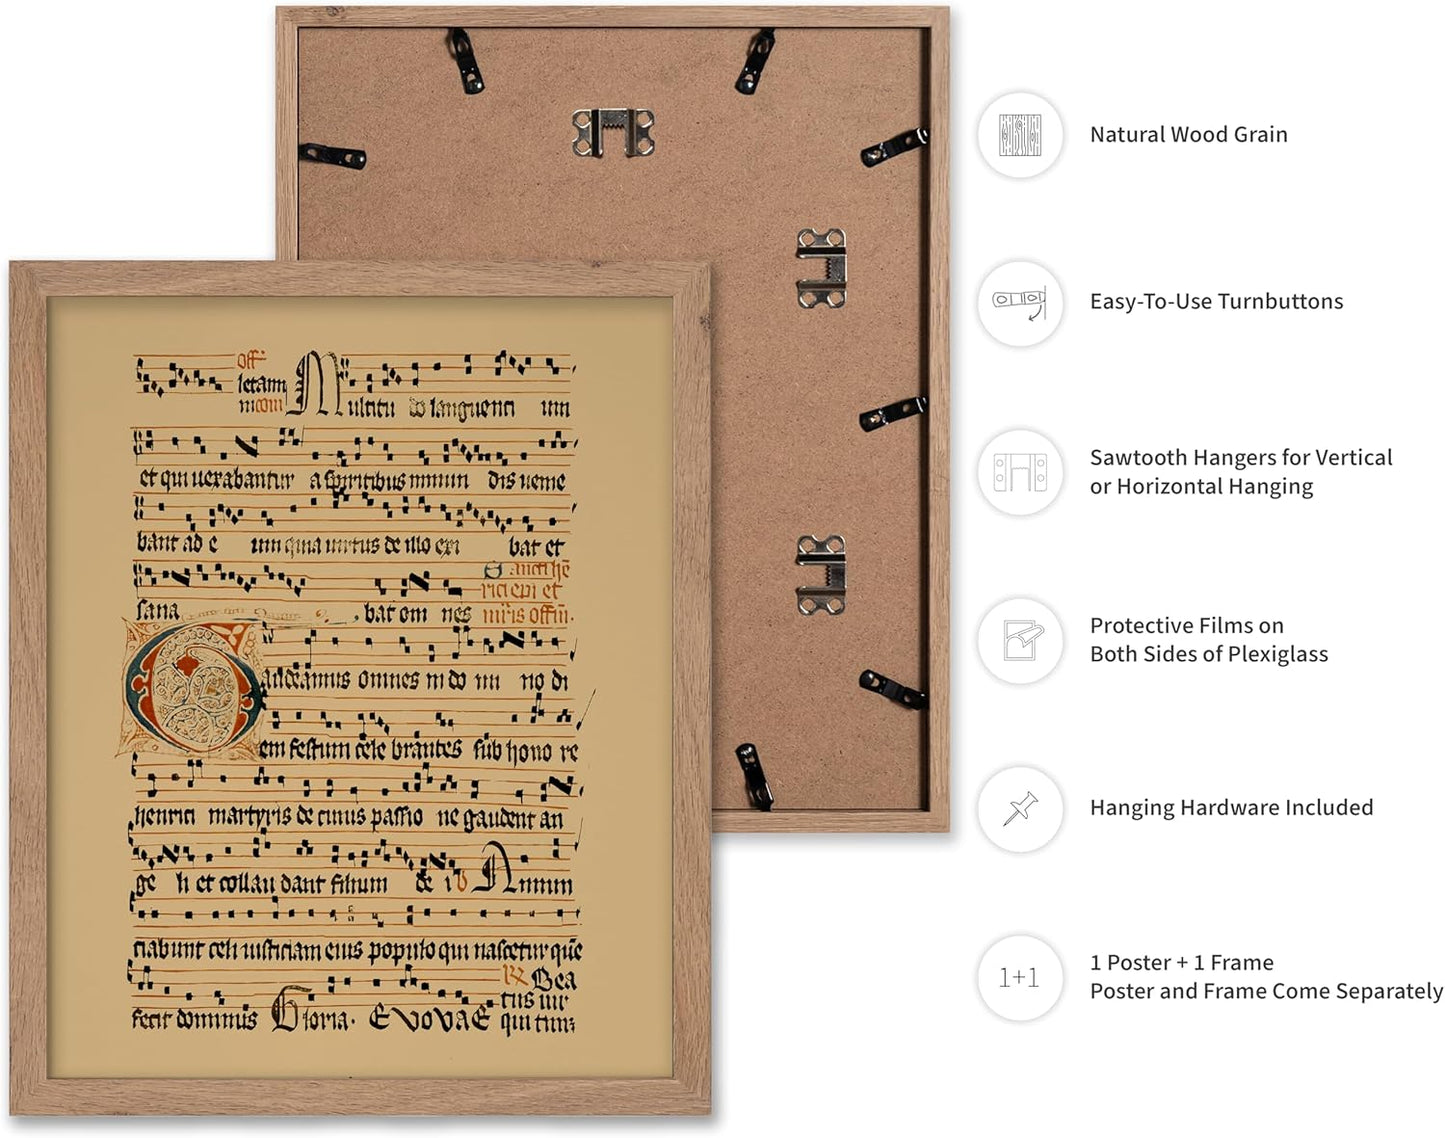 off
letam
m com
Multitu do languenti um
et qui uexabantur a spiritibus immun dis ueme
bant ad e um quia uirtus de illo exi bat et
Sancti hē
rici epi et
sana bat om nes
audeamus omnes in do mi no di
em festum cele brantes sub hono re
henrici martyris de cuius passio ne gaudent an
ge li et collau dant filium de i Annun
ciabunt celi iusticiam eius populo qui nascetur quē
Bea
tus uir
fecit dominus Gloria. EVOVAE qui tim;
Natural Wood Grain
Easy-To-Use Turnbuttons
Sawtooth Hangers for Vertical
or Horizontal Hanging
Protective Films on
Both Sides of Plexiglass
Hanging Hardware Included
1+1
1 Poster + 1 Frame
Poster and Frame Come Separately